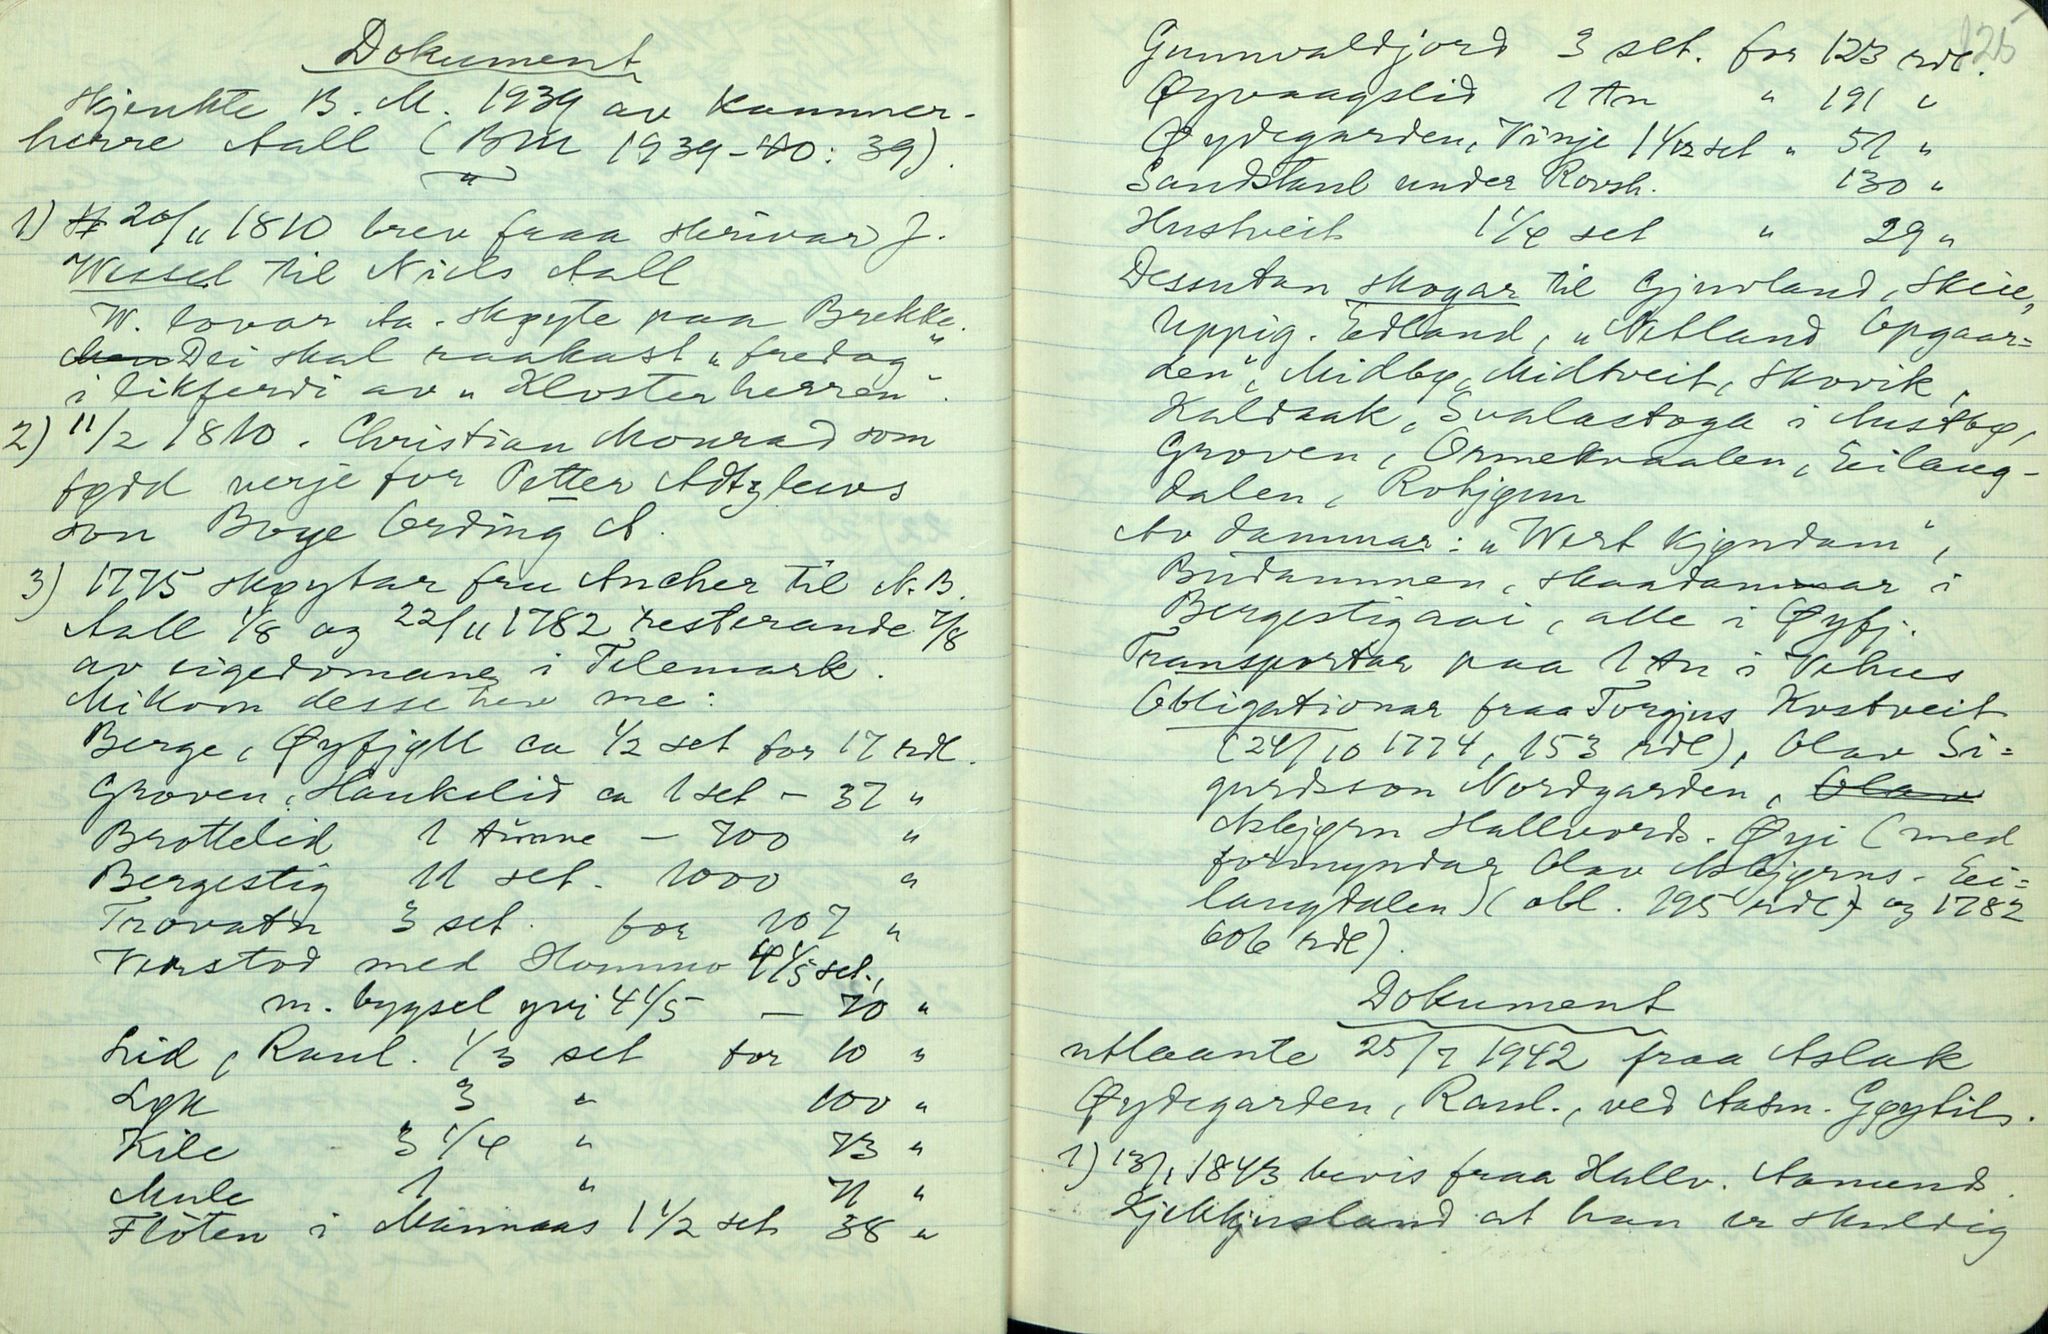 Dokument
skjenkte B. M. 1939 av kammer-
herre Aall (BM 1939-40: 39).
"
1) 20/11 1810 brev fraa skrivar J.
Wessel til Niels Aall
W. lovar Aa. skøyte paa Brekke.
Men Dei skal raakast "fredag"
i likferdi av "Klosterherren".
2) 11/2 1810. Christian Monrad som
født verje for Petter Adtzlews
son Boye Ording A.
3) 1775 skøytar fru Ancher til N. B.
Aall 1/8 og 22/11 1782 resterande 7/8
av eigedomane i Telemark.
Millom desse her me:
Berge, Øyfjell ca 1/2 set for 17 rdl.
Groven, Haukelid ca 1 set - 37 "
Brottelid 1 tunne - 700 "
Bergestig 11 set. 1000 "
Trovatn 3 set. for 107 "
Verstod med Hommo 4 1/5 set.,
m. bygsel yvi 4 1/5 - 70 "
Lid, Raul. 1/3 set for 10 "
Løk 3 " 100 "
Kile 3 1/4 " 73 "
Mule 1 " 71 "
Flöten i Mannaas 1 1/2 set 38 "
125
Gunnvaldjord 3 set. for 123 rdl.
Øyvaagslid 1 tn " 191 "
Øydegarden, Vinje 1 1/12 set " 51 "
Sandstaul under Rovsh. 130 "
Hustveit 1 1/4 set " 29 "
Dessutan skogar til Gjuvland, Skeie,
Uppig. Edland, "Netland Opgaar-
den", Midbø, Midtveit, Skovik,
Kaldaak, Svalastoga i Austbø,
Groven, Ormetvaalen, Eilaug-
dalen, Robjgun
Av dammar: "Wert Kjøndam",
Budammen, skaadammar i
Bergestigaai, alle i Øyfj.
Transportar paa 1 tn i Vehus
Obligationar fraa Torgjus Kostveit
(24/10 1774, 153 rdl), Olav Si-
gurdsson Nordgarden, Olav
Asbjørn Hallvords. Øyi (med
formyndar Olav Asbjørns. Ei-
laugdalen) (obl. 195 rdl) og 1782
606 rdl).
Dokument
utlaante 25/7 1942 fraa Aslak
Øydegarden, Raul., ved Aasm. Gøytils.
1) 13/1 1843 bevis fraa Hallv. Aamunds.
at han er skuldig